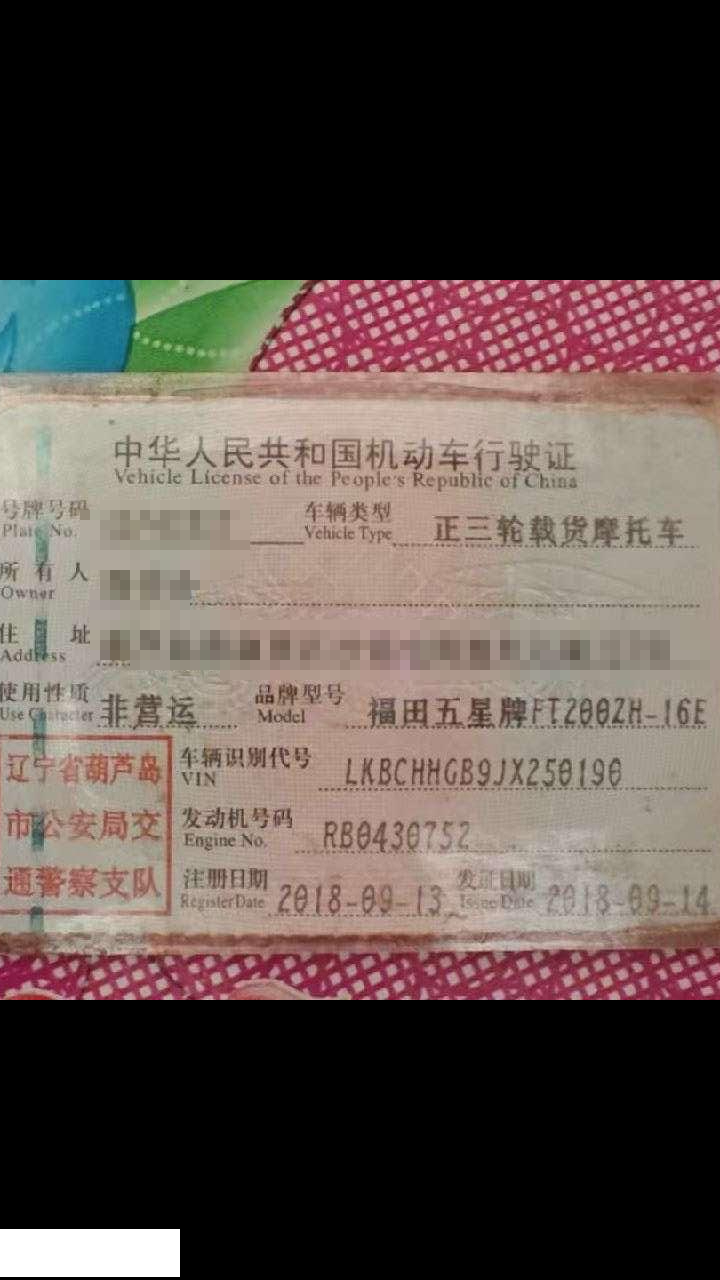 中华人民共和国机动车行驶证
Vehicle License of the People's Republic of China
号牌号码 车辆类型 正三轮载货摩托车
Plate No. Vehicle Type
所有人
Owner
住址
Address
使用性质 非营运 品牌型号 福田五星牌FT200ZH-16E
Use Character Model
辽宁省葫芦岛
市公安局交
通警察支队
车辆识别代号 LKBCHHGB9JX250190
VIN
发动机号码 RB0430752
Engine No.
注册日期 2018-09-13 发证日期 2018-09-14
Register Date Issue Date